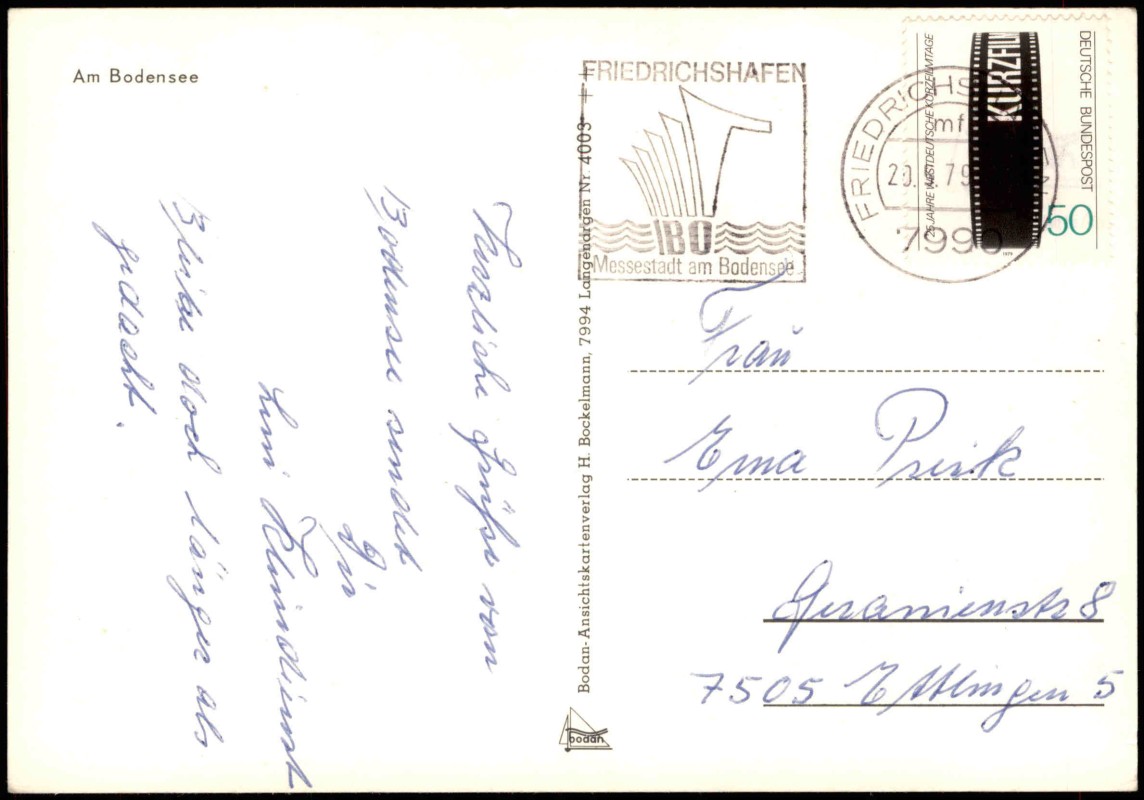 Am Bodensee
Herzliche Grüße vom
Bodensee sendet
Dir
Leni
Bleibe doch länger als
gedacht.
Bodan-Ansichtskartenverlag H. Bockelmann, 7994 Langenargen Nr. 4003
bodan
FRIEDRICHSHAFEN
IBO
Messestadt am Bodensee
FRIEDRICHS
mf
79
7990
25 JAHRE WESTDEUTSCHE KURZFILMTAGE
KURZFILM
DEUTSCHE BUNDESPOST
50
1979
Frau
Erna
Geranienstr 8
7505 Ettlingen 5